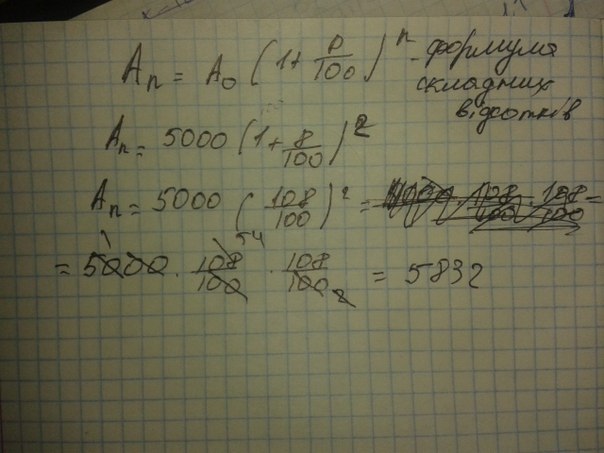 Aₙ = A₀ (1 + p/100)ⁿ - формула
складних
відсотків
Aₙ = 5000 (1 + 8/100)²
Aₙ = 5000 (108/100)² =
= 5000 · 108/100 · 108/100 = 5832